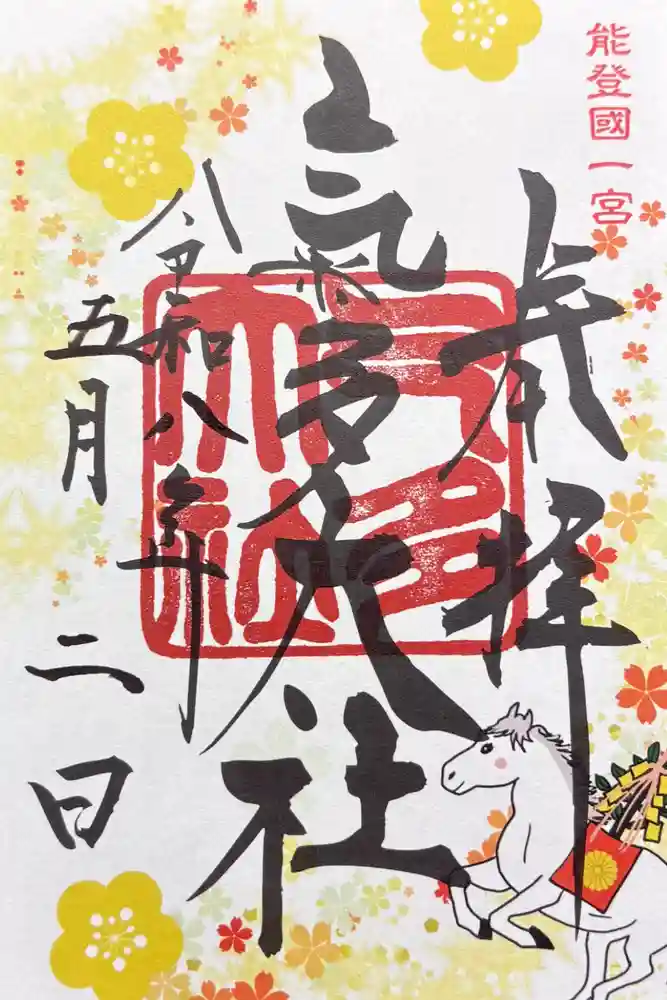 能登國一宮
奉拝
氣多大社
氣多大社
令和八年
五月二日